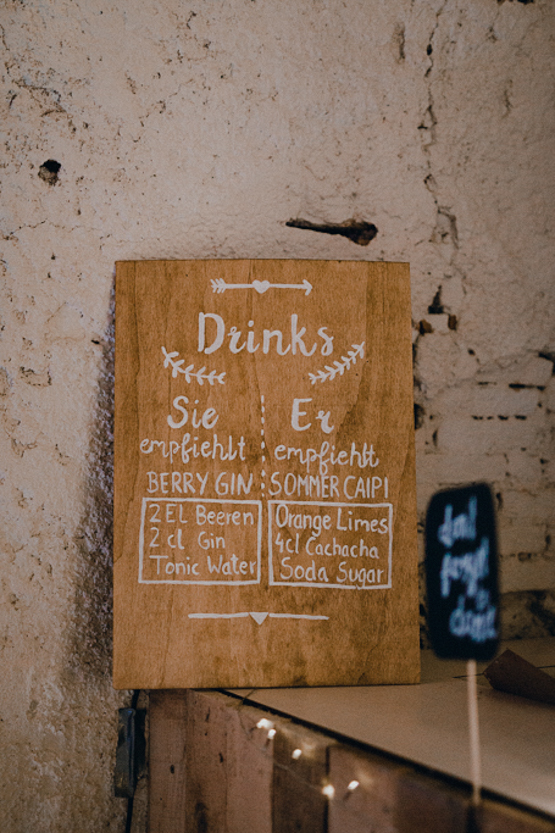 Drinks
Sie
empfiehlt
BERRY GIN
2 EL Beeren
2 cl Gin
Tonic Water
Er
empfiehlt
SOMMER CAIPI
Orange Limes
4cl Cachacha
Soda Sugar
to